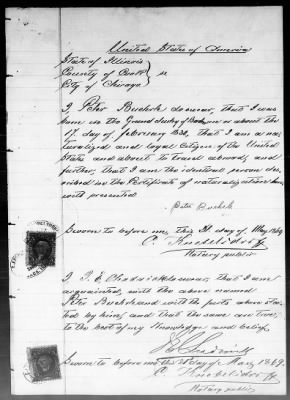 United States of America
State of Illinois
County of Cook ss
City of Chicago
I, Peter do swear, that I was
born in the Grand Duchy of on or about the
17. day of February 1830, that I am a nat
uralized and loyal Citizen of the United
States and about to travel abroad, and
further, that I am the identical person des
cribed in the Certificate of naturalization here
with presented
Peter
Sworn to before me, this day of May 1869
C.
Notary public
I, do swear, that I am
acquainted, with the above named
Peter and with the facts above sta
ted by him, and that the same are true,
to the best of my Knowledge and belief.
Sworn to before me this day of May 1869.
C.
Notary public